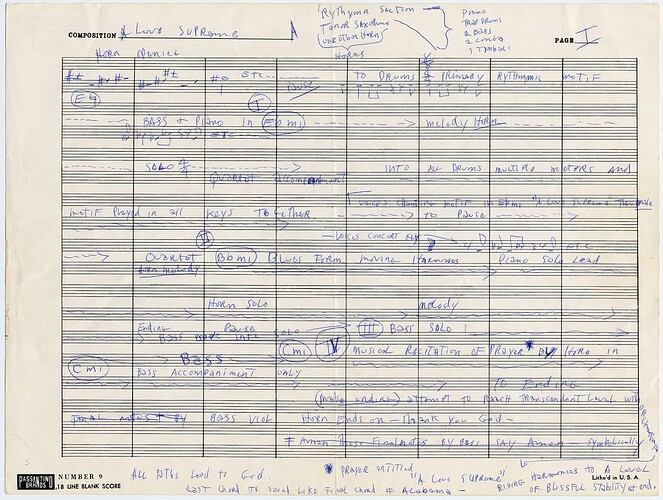 COMPOSITION A Love Supreme A
Rythymn Section
Tenor Saxophone
one other horn
Horns
piano
Trap Drums
2 Bass
2 conga
1 Tymbali
PAGE I
Horn
ETC
Pause
TO DRUMS
Primary RyThymnic motif
E♮
I
BASS & Piano in Ebmi
melody Horn
ETC
SOLO 4/4
INTO ALL DRUMS multiple meters And
Quartet accompaniment
voices chanting motif in Bbmi "A Love Supreme"
motif Played in all keys Together
To Pause
II
VOICES CONCERT KEY
ETC
Quartet Bbmi Blues Form moving Harmonies Piano Solo Lead
Horn melody
Horn SOLO
melody
Ending Pause
Bass move into SOLO
III Bass SOLO
Cmi
IV
Bass
Cmi
MUSICAL RECITATION OF PRAYER * BY HORN IN
Bass Accompaniment Only
TO Ending
(make ending) attempt to Reach Transcendent Level with
BY Bass Viol Horn Ends on — Thank You God —
Amen These Final notes By Bass SAY Amen — Symbolically
RISING HARMONIES TO A LEVEL
OF BLISSFUL STABILITY at end.
ALL PATHs Lead To God.
Last Chord To Sound Like Final Chord of Alabama.
* PRAYER entitled
"A Love Supreme"
PASSANTINO
BRANDS
NUMBER 9
18 LINE BLANK SCORE
Litho'd in U. S. A.